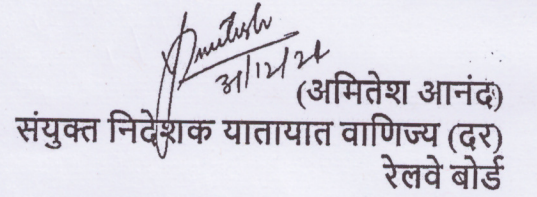 Amitesh
31/12/21
(अमितेश आनंद)
संयुक्त निदेशक यातायात वाणिज्य (दर)
रेलवे बोर्ड